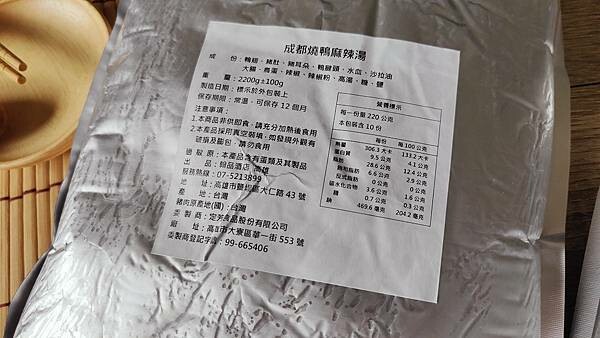 成都燒鴨麻辣湯
成 份：鴨翅、豬肚、豬耳朵、鴨腱頭、水血、沙拉油
大腸、鳥蛋、辣椒、辣椒粉、高湯、糖、鹽
重 量：2200g±100g
製造日期：標示於外包裝上
保存期限：常溫，可保存 12 個月
注意事項：
1.本商品非供即食，請充分加熱後食用
2.本產品採用真空裝填，如發現外觀有
破損及脹包，請勿食用
過 敏 原：本產品含有蛋類及其製品
出 品：翰品酒店 高雄
服務熱線：07-5213899
地 址：高雄市鹽埕區大仁路 43 號
產 地：台灣
豬肉原產地(國)：台灣
委 製 商：定芳食品股份有限公司
廠 址：高雄市大寮區華一街 553 號
委製商登記字號：99-665406
營養標示
每一份量 220 公克
本包裝含 10 份
每份 每 100 公克
熱量 306.3 大卡 133.2 大卡
蛋白質 9.5 公克 4.1 公克
脂肪 28.6 公克 12.4 公克
飽和脂肪 6.6 公克 2.9 公克
反式脂肪 0 公克 0 公克
碳水化合物 3.6 公克 1.6 公克
糖 0.7 公克 0.3 公克
鈉 469.6 毫克 204.2 毫克